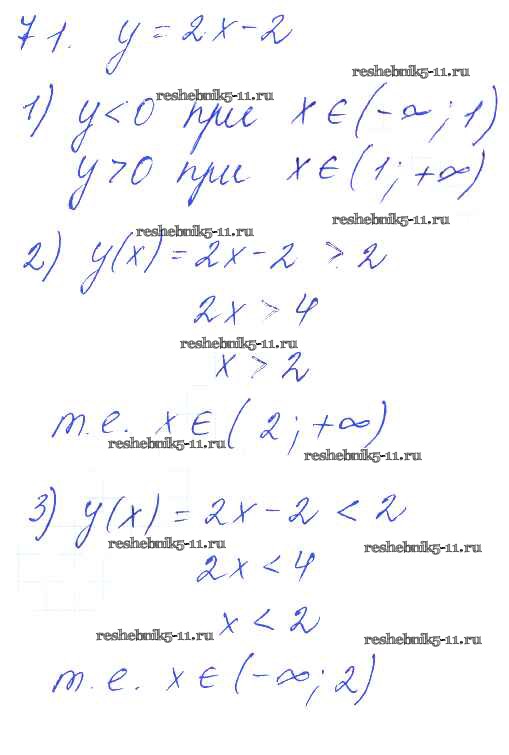 71. y = 2x - 2
reshebnik5-11.ru
reshebnik5-11.ru
1) y < 0 при x ∈ (-∞; 1)
y > 0 при x ∈ (1; +∞)
reshebnik5-11.ru
reshebnik5-11.ru
2) y(x) = 2x - 2 > 2
2x > 4
reshebnik5-11.ru
x > 2
т.е. x ∈ (2; +∞)
reshebnik5-11.ru
reshebnik5-11.ru
3) y(x) = 2x - 2 < 2
reshebnik5-11.ru
reshebnik5-11.ru
2x < 4
x < 2
reshebnik5-11.ru
reshebnik5-11.ru
т.е. x ∈ (-∞; 2)